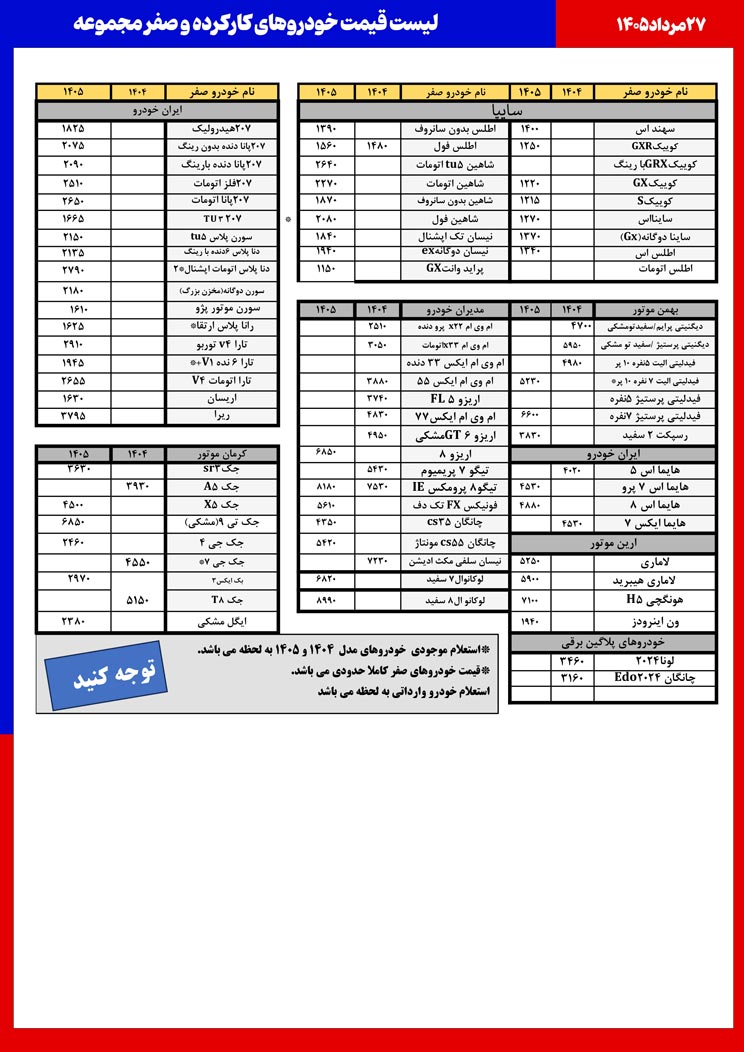 ۲۷مرداد۱۴۰۵
لیست قیمت خودروهای کارکرده و صفر مجموعه
نام خودرو صفر ۱۴۰۴ ۱۴۰۵ نام خودرو صفر ۱۴۰۴ ۱۴۰۵
سایپا
سهند اس ۱۴۰۰ اطلس بدون سانروف ۱۳۹۰
کوییکGXR ۱۲۵۰ اطلس فول ۱۴۸۰ ۱۵۶۰
کوییکGRXبا رینگ شاهین tu5 اتومات ۲۶۴۰
کوییکGX ۱۲۲۰ شاهین اتومات ۲۲۷۰
کوییکS ۱۲۱۵ شاهین بدون سانروف ۱۸۷۰
سایناس ۱۲۷۰ شاهین فول ۲۰۸۰ *
ساینا دوگانه(Gx) ۱۳۷۰ نیسان تک اپشنال ۱۸۴۰
اطلس اس ۱۳۴۰ نیسان دوگانهex ۱۹۴۰
اطلس اتومات پراید وانتGX ۱۱۵۰
بهمن موتور ۱۴۰۴ ۱۴۰۵
دیگنیتی پرایم/سفیدتومشکی ۴۷۰۰
دیگنیتی پرستیژ /سفید تو مشکی ۵۹۵۰
فیدلیتی الیت ۵نفره ۱۰ پر ۴۹۸۰
فیدلیتی الیت ۷ نفره ۱۰ پر* ۵۲۳۰
فیدلیتی پرستیژ ۵نفره
فیدلیتی پرستیژ ۷نفره ۶۶۰۰
رسپکت ۲ سفید ۳۸۳۰
ایران خودرو
هایما اس ۵ ۴۰۲۰
هایما اس ۷ پرو ۴۵۳۰
هایما اس ۸ ۴۸۸۰
هایما ایکس ۷ ۴۵۳۰
ارین موتور
لاماری ۵۲۵۰
لاماری هیبرید ۵۹۰۰
هونگچی H5 ۷۱۰۰
ون اینرودز ۱۹۴۰
خودروهای پلاگین برقی
لونا۲۰۲۴ ۳۴۶۰
چانگان Edo۲۰۲۴ ۳۱۶۰
مدیران خودرو ۱۴۰۴ ۱۴۰۵
ام وی ام x۲۲ پرو دنده ۲۵۱۰
ام وی ام x۳۳اتومات ۳۰۵۰
ام وی ام ایکس ۳۳ دنده
ام وی ام ایکس ۵۵ ۳۸۸۰
اریزو ۵ FL ۳۷۴۰
ام وی ام ایکس۷۷ ۴۸۳۰
اریزو ۶ GTمشکی ۴۹۵۰
اریزو ۸ ۶۸۵۰
تیگو ۷ پریمیوم ۵۴۳۰
تیگو۸ پرومکس IE ۷۵۳۰ ۸۱۸۰
فونیکس FX تک دف ۵۶۱۰
چانگان cs۳۵ ۴۳۵۰
چانگان cs۵۵ مونتاژ ۵۴۲۰
نیسان سلفی مکث ادیشن ۷۲۳۰
لوکانوال۷ سفید ۶۸۲۰
لوکانو ال۸ سفید ۸۹۹۰
نام خودرو صفر ۱۴۰۴ ۱۴۰۵
ایران خودرو
۲۰۷هیدرولیک ۱۸۲۵
۲۰۷پانا دنده بدون رینگ ۲۰۷۵
۲۰۷پانا دنده بارینگ ۲۰۹۰
۲۰۷فلز اتومات ۲۵۱۰
۲۰۷پانا اتومات ۲۶۵۰
۲۰۷ TU۳ ۱۶۶۵
سورن پلاس tu۵ ۲۱۵۰
دنا پلاس ۶دنده با رینگ ۲۱۳۵
دنا پلاس اتومات اپشنال*۲ ۲۷۹۰
سورن دوگانه(مخزن بزرگ) ۲۱۸۰
سورن موتور پژو ۱۶۱۰
رانا پلاس ارتقا* ۱۶۲۵
تارا v۴ توربو ۲۹۱۰
تارا ۶ نده V۱+* ۱۹۴۵
تارا اتومات V۴ ۲۶۵۵
اریسان ۱۶۳۰
ریرا ۳۷۹۵
کرمان موتور ۱۴۰۴ ۱۴۰۵
جکsr۳ ۳۶۳۰
جک A۵ ۳۹۳۰
جک X۵ ۴۵۰۰
جک تی ۹(مشکی) ۶۸۵۰
جک جی ۴ ۲۴۶۰
جک جی ۷* ۴۵۵۰
بک ایکس۳ ۲۹۷۰
جک T۸ ۵۱۵۰
ایگل مشکی ۲۳۸۰
*استعلام موجودی خودروهای مدل ۱۴۰۴ و ۱۴۰۵ به لحظه می باشد.
*قیمت خودروهای صفر کاملا حدودی می باشد.
استعلام خودرو وارداتی به لحظه می باشد
توجه کنید